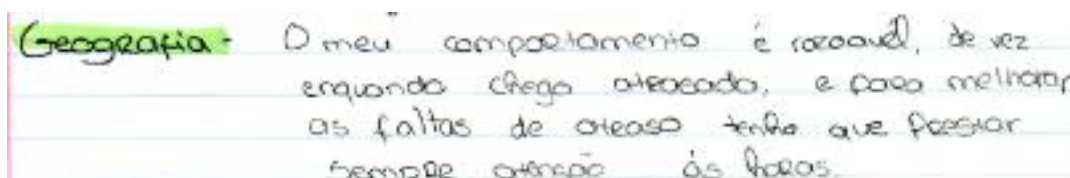 Geografia - O meu comportamento é razoavél, de vez
enquando chego atrasado, e para melhorar
as faltas de atraso tenho que prestar
sempre atenção ás horas.